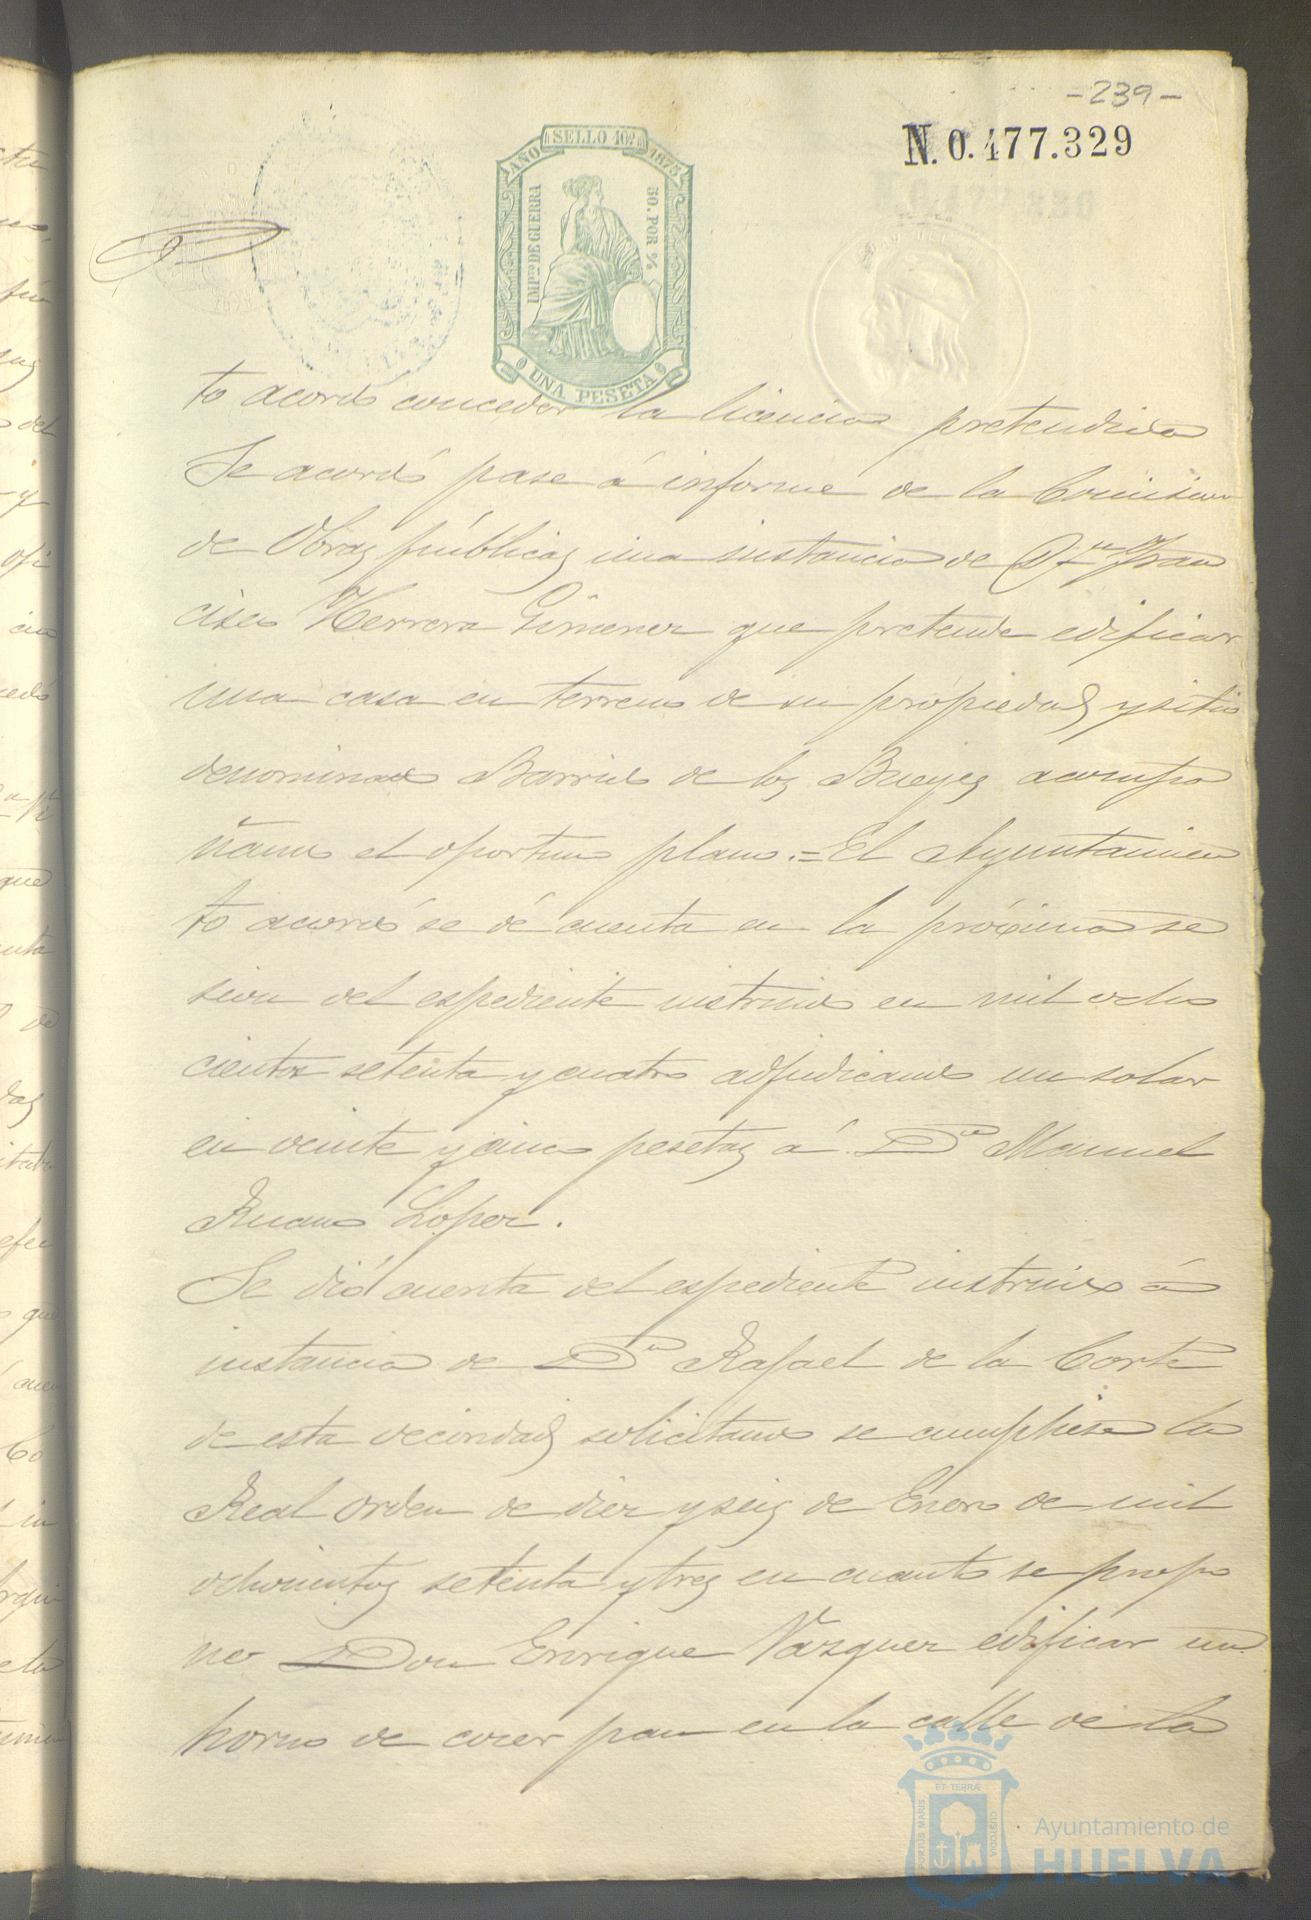 -239-
N. 0.477.329
AÑO SELLO 10º 1875
IMPto DE GUERRA
50. POR %
UNA PESETA
to acordó conceder la licencia pretendida
Se acordó pase á informe de la Comision
de Obras públicas una instancia de Dn Fran
cisco Herrera Gimenez que pretende edificar
una casa en terreno de su propiedad y sitio
denominado Barrio de los Bueyes acompa
ñando el oportuno plano.=El Ayuntamien
to acordó se dé cuenta en la próxima se
sion del espediente instruido en mil ocho
cientos setenta y cuatro adjudicando un solar
en veinte y cinco pesetas á Dn Manuel
Ruano Lopez.
Se dió cuenta del espediente instruido á
instancia de Dn Rafael de la Corte
de esta vecindad solicitando se cumpliese la
Real orden de diez y seis de Enero de mil
ochocientos setenta y tres en cuanto se propo
ne Don Enrique Vazquez edificar un
horno de cocer pan en la calle de la
ET TERRÆ
PORTUS MARIS
CUSTODIA
Ayuntamiento de
HUELVA